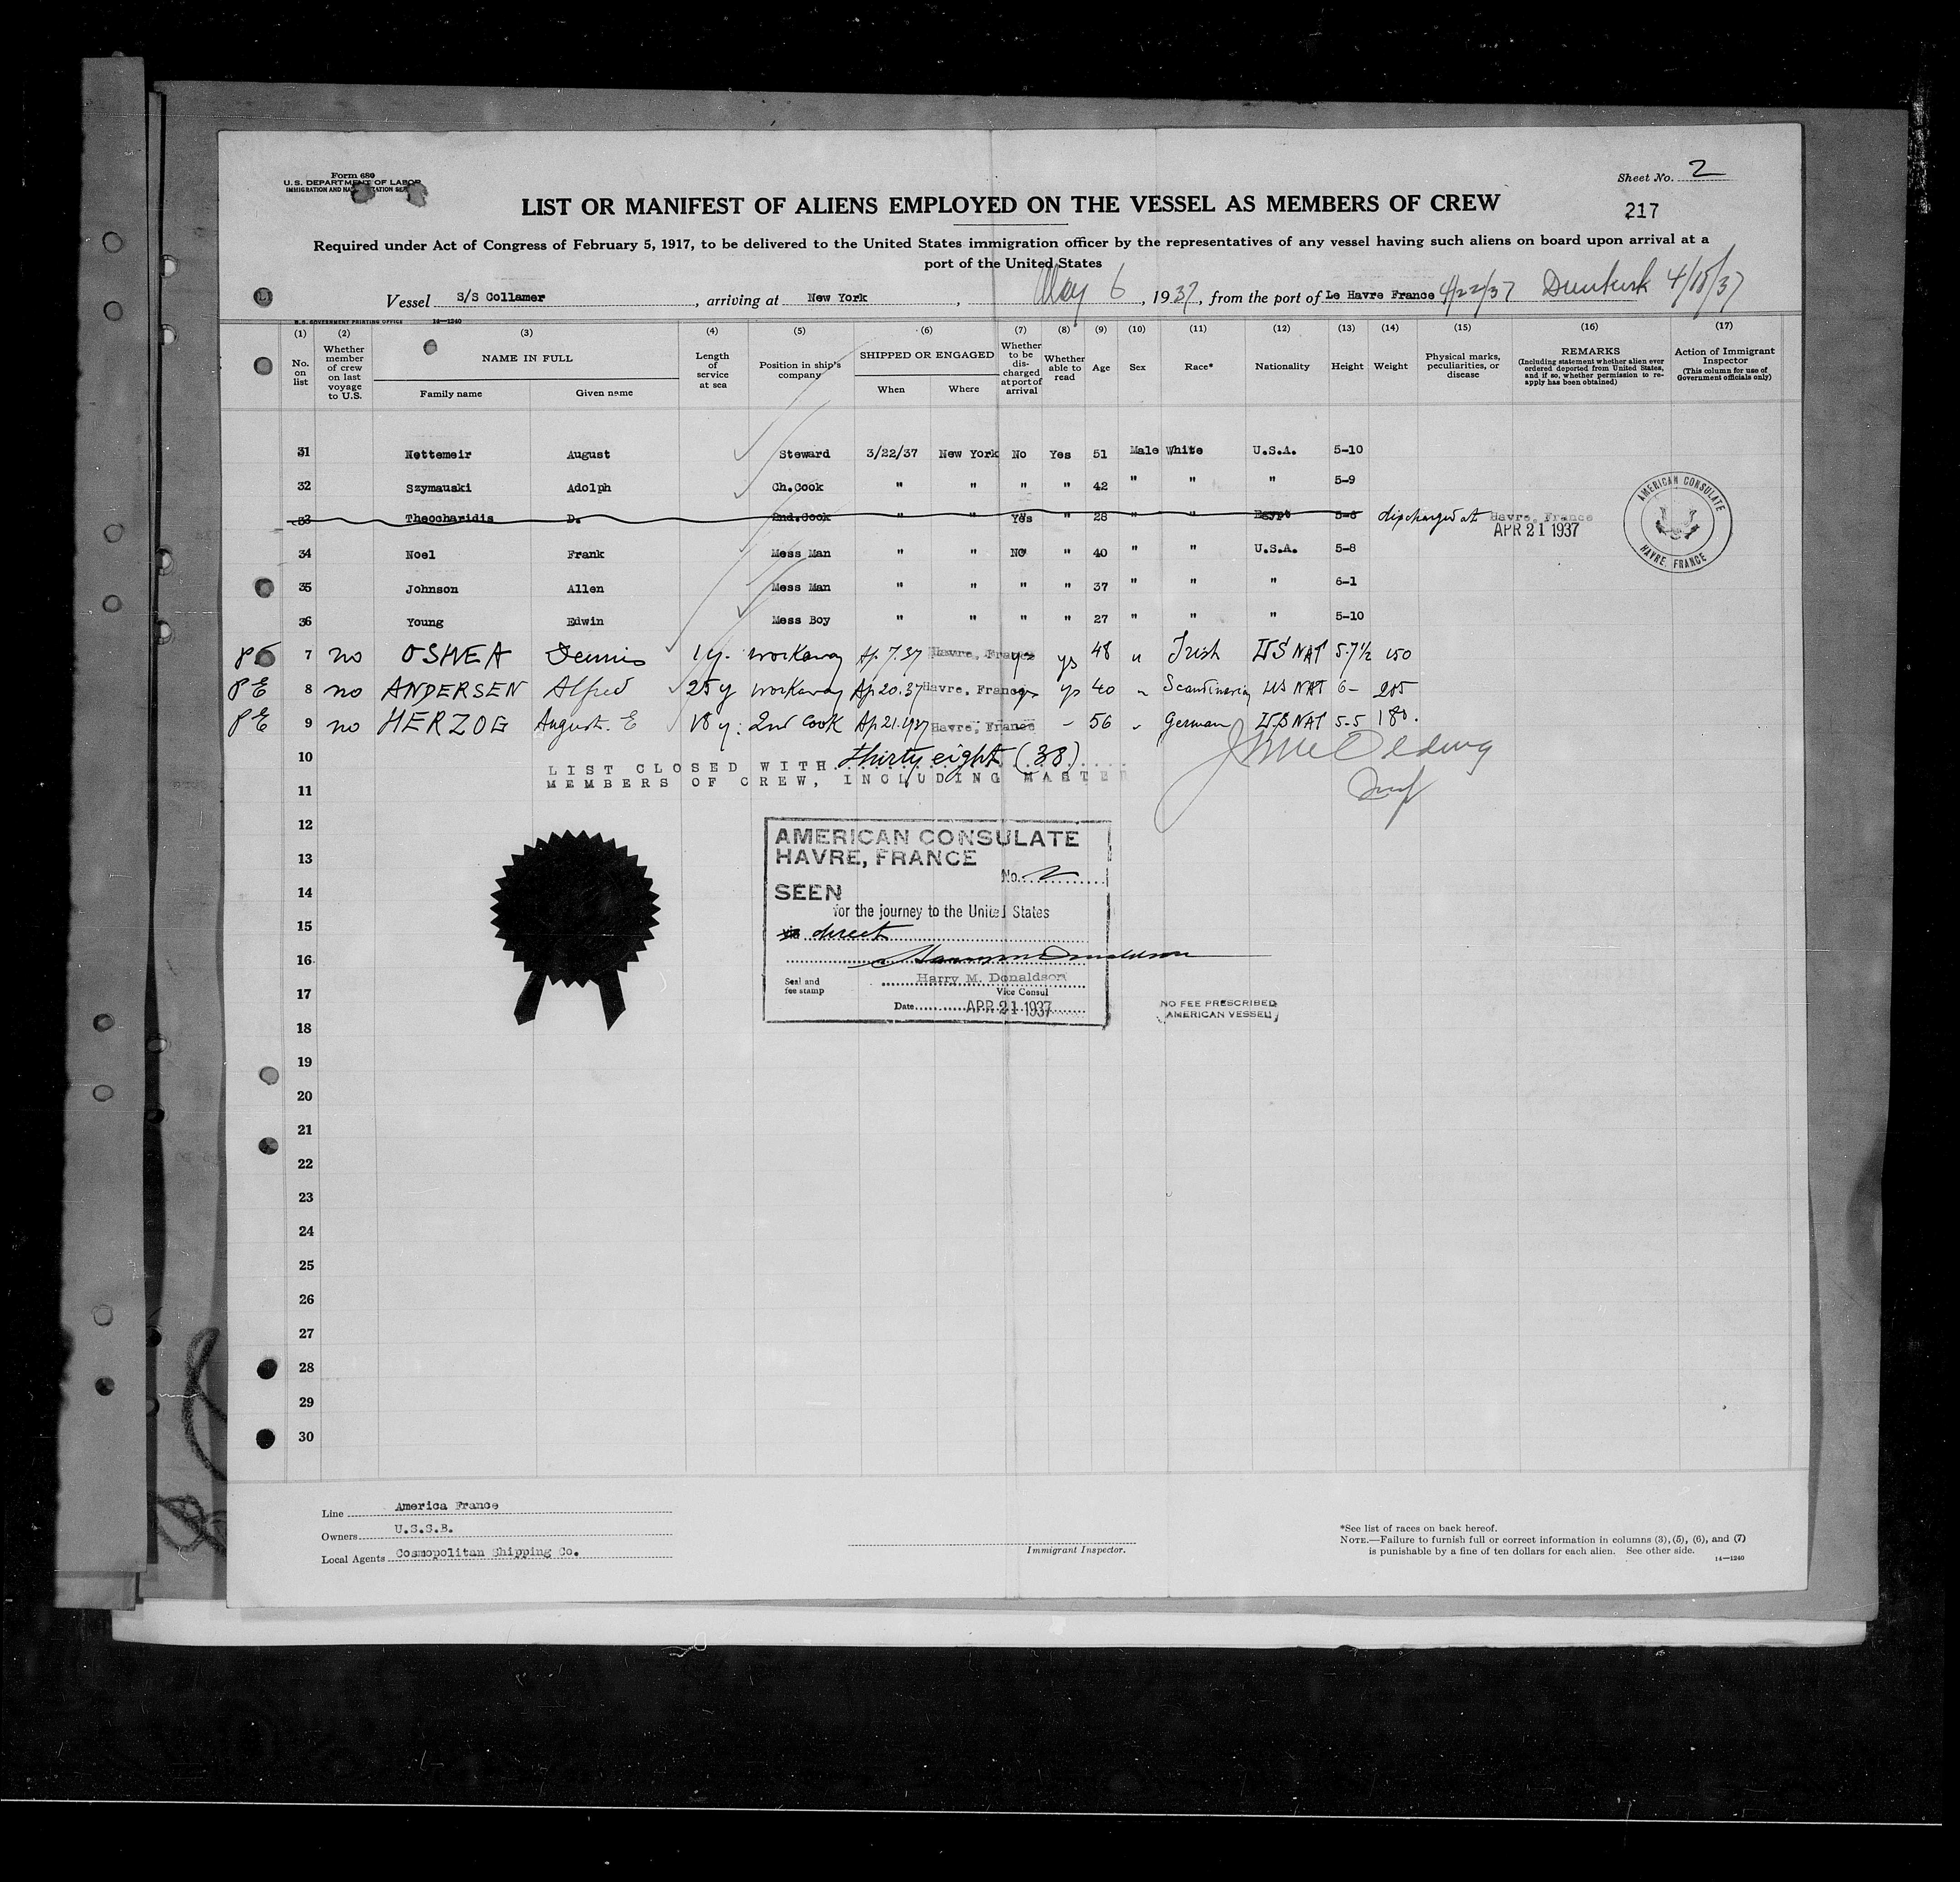 Form 680
U.S. DEPARTMENT OF LABOR
IMMIGRATION AND
Sheet No. 2
LIST OR MANIFEST OF ALIENS EMPLOYED ON THE VESSEL AS MEMBERS OF CREW
217
Required under Act of Congress of February 5, 1917, to be delivered to the United States immigration officer by the representatives of any vessel having such aliens on board upon arrival at a
port of the United States
Vessel S/S Collamer, arriving at New York, May 6, 1937, from the port of Le Havre France 4/22/37 Dunkirk 4/18/37
U.S. GOVERNMENT PRINTING OFFICE 14—1240
(1) (2) (3) (4) (5) (6) (7) (8) (9) (10) (11) (12) (13) (14) (15) (16) (17)
No. on list
Whether member of crew on last voyage to U.S.
NAME IN FULL
Family name Given name
Length of service at sea
Position in ship's company
SHIPPED OR ENGAGED
When Where
Whether to be discharged at port of arrival
Whether able to read
Age Sex Race* Nationality Height Weight
Physical marks, peculiarities, or disease
REMARKS
(Including statement whether alien ever ordered deported from United States, and if so, whether permission to reapply has been obtained)
Action of Immigrant Inspector
(This column for use of Government officials only)
31 Nettemeir August Steward 3/22/37 New York No Yes 51 Male White U.S.A. 5-10
32 Szymauski Adolph Ch.Cook " " " " 42 " " " 5-9
33 Theocharidis D. 2nd.Cook " " Yes " 28 " " Egypt 5-6 discharged at Havre, France
APR 21 1937
AMERICAN CONSULATE
HAVRE, FRANCE
34 Noel Frank Mess Man " " NO " 40 " " U.S.A. 5-8
35 Johnson Allen Mess Man " " " " 37 " " " 6-1
36 Young Edwin Mess Boy " " " " 27 " " " 5-10
7 no OSHEA Dennis 1 y. workaway Ap 7.37 Havre, France ys 48 " Irish US NAT 5-7½ 150
PE 8 no ANDERSEN Alfred 25 y workaway Ap 20.37 Havre, France ys ys 40 " Scandinavian US NAT 6- 205
PE 9 no HERZOG August. E 18 y. 2nd Cook Ap 21.1937 Havre, France - 56 " German US NAT 5-5 180.
10
LIST CLOSED WITH thirty eight (38)
11
MEMBERS OF CREW, INCLUDING MASTER
12
13
14
15
16
17
18
AMERICAN CONSULATE
HAVRE, FRANCE
No. 2
SEEN
for the journey to the United States
via direct
Harry M. Donaldson
Seal and fee stamp
Vice Consul
Date APR 21 1937
NO FEE PRESCRIBED
AMERICAN VESSEL
19
20
21
22
23
24
25
26
27
28
29
30
Line America France
Owners U.S.S.B.
Local Agents Cosmopolitan Shipping Co.
Immigrant Inspector.
*See list of races on back hereof.
NOTE.—Failure to furnish full or correct information in columns (3), (5), (6), and (7)
is punishable by a fine of ten dollars for each alien. See other side.
14—1240